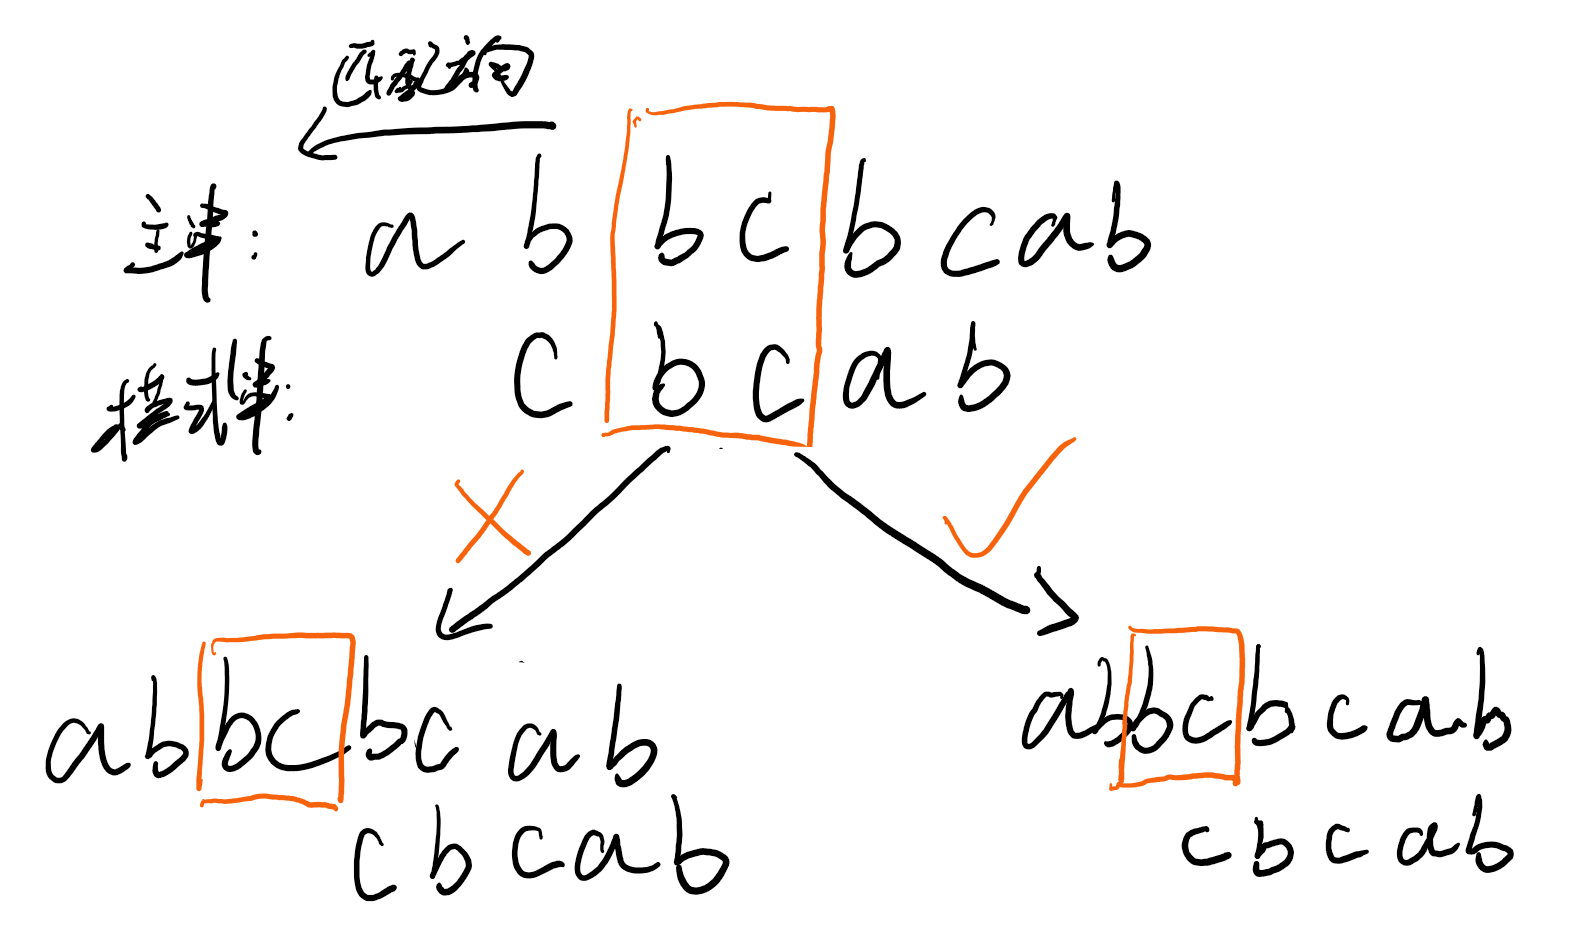 匹配方向
主串: a b b c b c a b
模式串: c b c a b
a b b c b c a b
c b c a b
a b b c b c a b
c b c a b